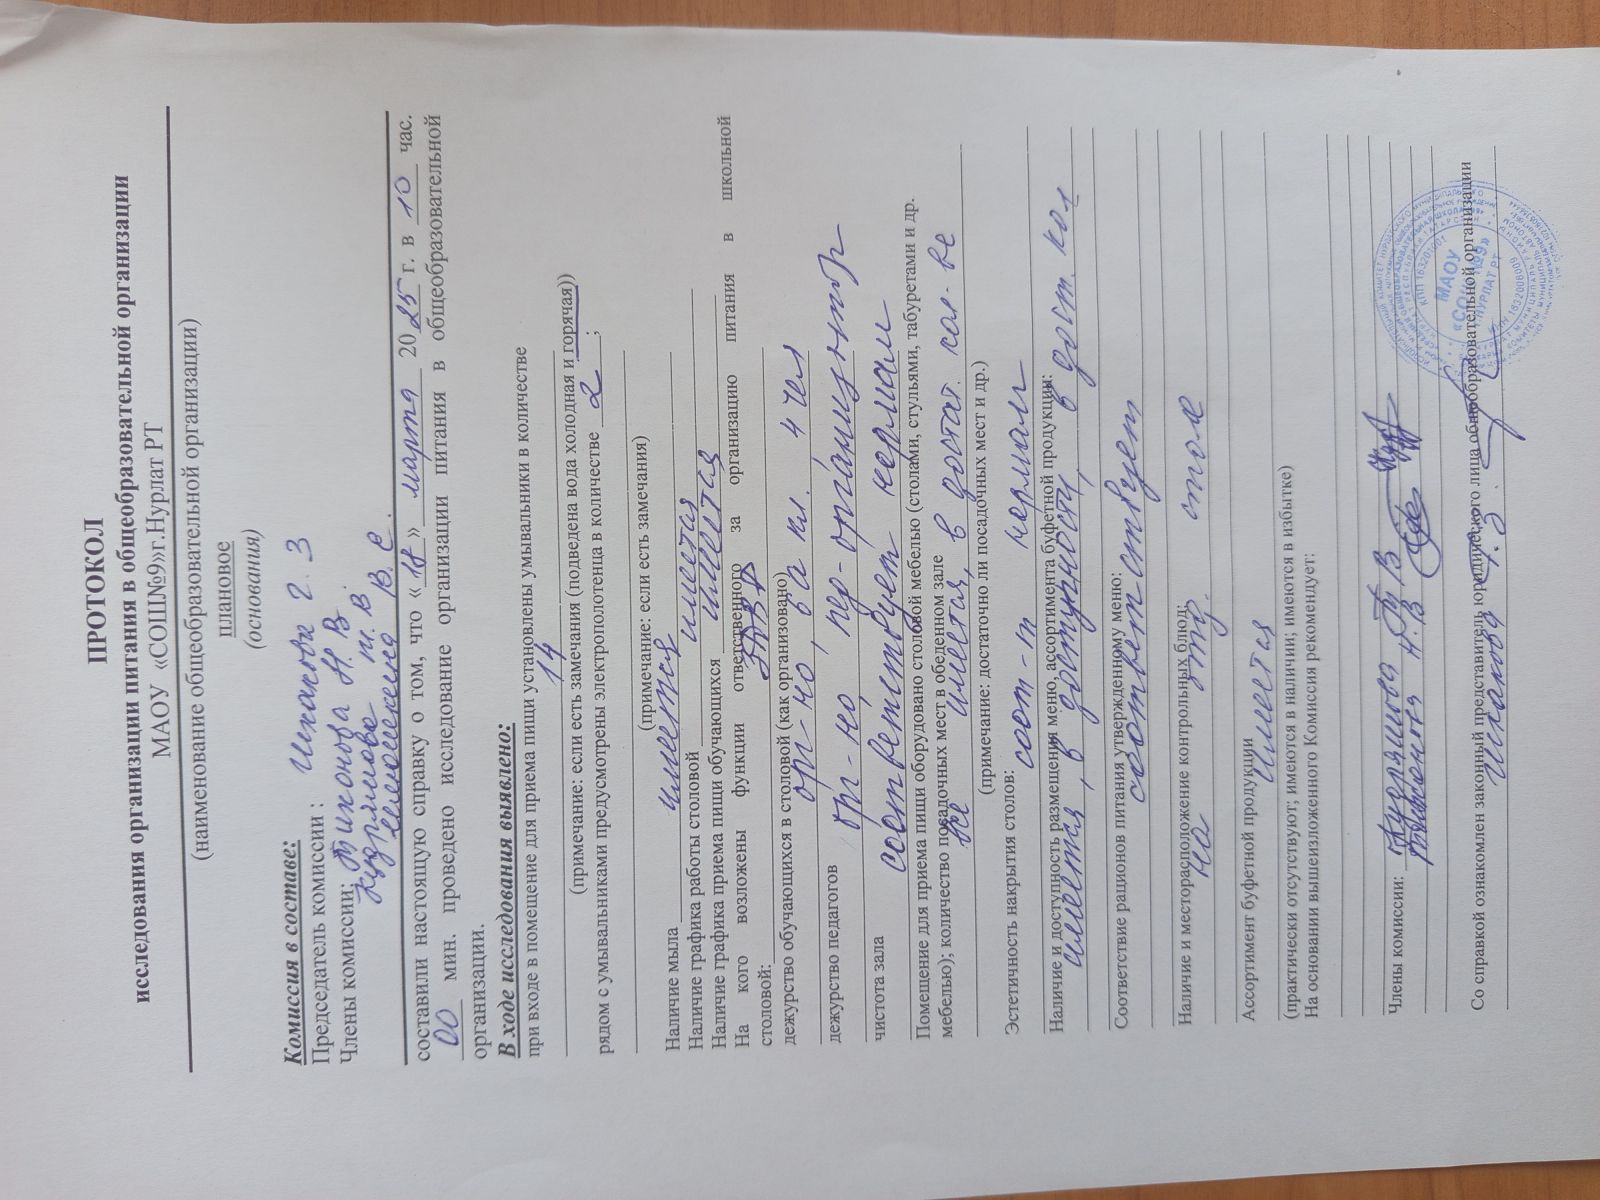 ПРОТОКОЛ
исследования организации питания в общеобразовательной организации
МАОУ «СОШ№9»г.Нурлат РТ
(наименование общеобразовательной организации)
плановое
(основания)
Комиссия в составе:
Председатель комиссии : Исхакова Г. З
Члены комиссии; Тихонова Н. В.
Кузьмова Т. В.
В. С.
составили настоящую справку о том, что «18» марта 2025 г. в 10 час.
00 мин. проведено исследование организации питания в общеобразовательной
организации.
В ходе исследования выявлено:
при входе в помещение для приема пищи установлены умывальники в количестве
14
(примечание: если есть замечания (подведена вода холодная и горячая))
рядом с умывальниками предусмотрены электрополотенца в количестве 2 ;
(примечание: если есть замечания)
Наличие мыла имеется
Наличие графика работы столовой имеется
Наличие графика приема пищи обучающихся имеется
На кого возложены функции ответственного за организацию питания в школьной
столовой: ЗДВР
дежурство обучающихся в столовой (как организовано)
орг-но, 8а кл. 4 чел
дежурство педагогов орг-но, пед-организатор
чистота зала соответствует нормам
Помещение для приема пищи оборудовано столовой мебелью (столами, стульями, табуретами и др.
мебелью); количество посадочных мест в обеденном зале
все имеется, в достат. кол-ве
(примечание: достаточно ли посадочных мест и др.)
Эстетичность накрытия столов: соот-т нормам
Наличие и доступность размещения меню, ассортимента буфетной продукции:
имеется, в доступности, в дост. кол
Соответствие рационов питания утвержденному меню:
соответствует
Наличие и месторасположение контрольных блюд:
на отд. столе
Ассортимент буфетной продукции
имеется
(практически отсутствуют; имеются в наличии; имеются в избытке)
На основании вышеизложенного Комиссия рекомендует:
Члены комиссии: Т. В
Н. В
Со справкой ознакомлен законный представитель юридического лица общеобразовательной организации
Исхакова Г. З.
МАОУ
«СОШ №9»
Г.НУРЛАТ РТ